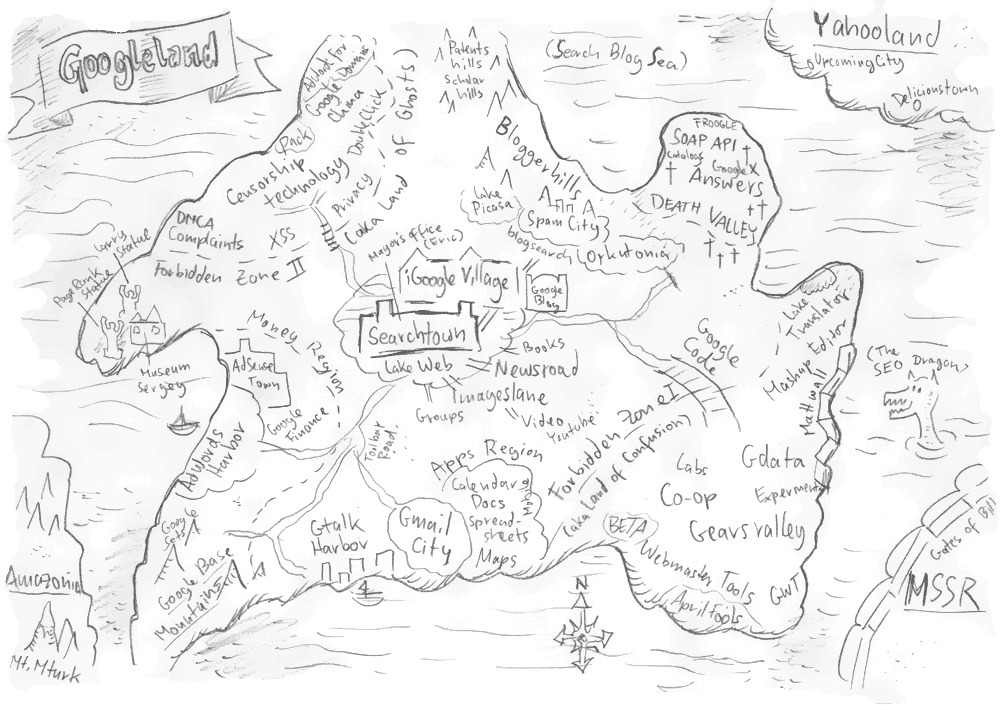 Googleland
Yahooland
UpcomingCity
Delicioustown
(Search Blog Sea)
Patents
hills
Scholar
hills
Adwords for
Google Domains
China
(Pack)
DoubleClick
Censorship
technology
Privacy
(aka Land
of Ghosts)
Bloggerhills
FROOGLE
SOAP API
Catalogs
Google X
Answers
DEATH VALLEY
Lake
Picasa
Spam City
blogsearch
Orkutonia
DMCA
Complaints
XSS
Forbidden Zone II
Larry
Statue
PageRank
Statue
Museum
Sergey
Mayor's office
(Eric)
iGoogle Village
Google
Blog
Searchtown
Lake Web
Books
Newsroad
Imageslane
Groups
Video
Youtube
Money Region
AdSense
Town
Google
Finance
AdWords
Harbor
Toolbar
Road
Google
Code
Lake
Translator
Mashup Editor
Mattwall
(The
SEO Dragon)
Forbidden Zone I
(aka Land of Confusion)
Apps Region
Calendar
Docs
spread-
sheets
Mobile
Maps
Labs
Gdata
Co-op
Experiment
Gearsvalley
BETA
Webmaster Tools
GWT
April fools
Google
Sets
Google Base
Mountains
Gtalk
Harbor
Gmail
City
N
Amazonia
Mt. Mturk
Gates of Bill
MSSR